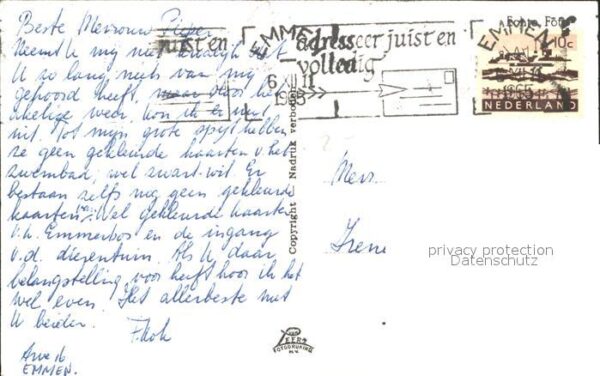 Beste Mevrouw Pieper
Neemt U mij niet kwalijk dat
U zo lang niets van mij
gehoord heeft, maar door het
weer, kon ik er niet
uit. Tot mijn grote spijt hebben
ze geen gekleurde kaarten v. het
zwembad; wel zwart-wit. Er
bestaan zelfs nog geen gekleurde
kaarten. Wel gekleurde kaarten
v.h. Emmerbos en de ingang
v.d. dierentuin. Als U daar
belangstelling voor heeft hoor ik het
wel even. Het allerbeste met
U beiden.
F. Kok
EMMEN.
juist en
EMMEN
6 XII 11
1965
adresseer juist en
volledig
EMMEN
1965
10c
NEDERLAND
Copyright - Nadruk verboden
Mevr.
Irene
privacy protection
Datenschutz
van
LEER'S
FOTODRUKIND
N.V.